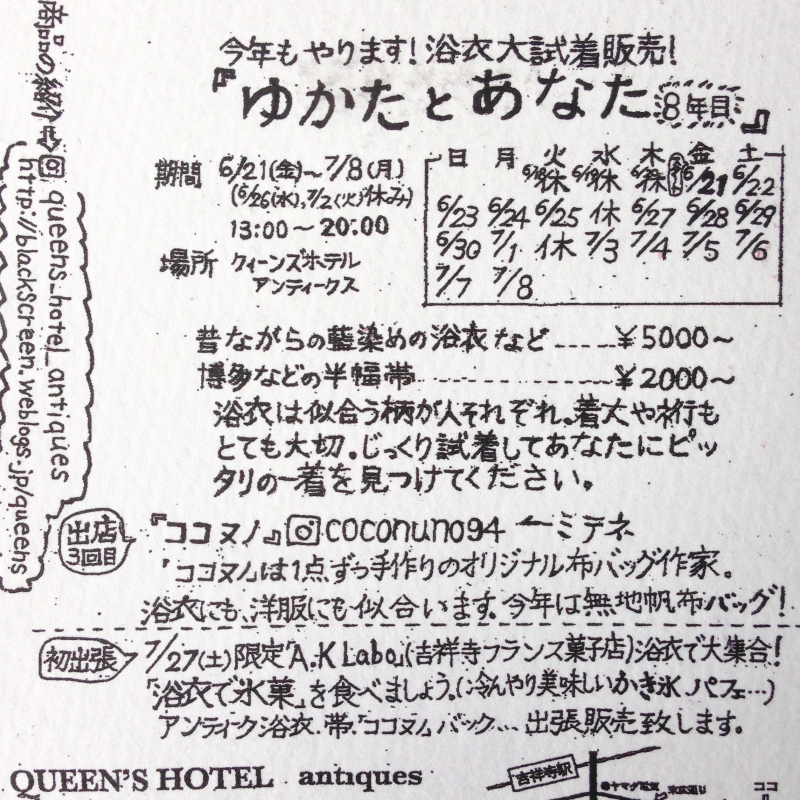 今年もやります！浴衣大試着販売！
『ゆかたとあなた8年目』
期間 6/21(金)～7/8(月)
(6/26(水),7/2(火)休み)
13:00～20:00
場所 クィーンズホテル
アンティークス
日 月 火 水 木 金 土
6/18休 6/19休 6/20休 6/21 6/22
6/23 6/24 6/25 休 6/27 6/28 6/29
6/30 7/1 休 7/3 7/4 7/5 7/6
7/7 7/8
昔ながらの藍染めの浴衣など-----¥5000～
博多などの半幅帯-------------¥2000～
浴衣は似合う柄が人それぞれ。着丈や裄も
とても大切。じっくり試着してあなたにピッ
タリの一着を見つけてください。
出店
3回目
『ココヌノ』coconuno94 ←ミテネ
「ココヌノ」は1点ずつ手作りのオリジナル布バッグ作家。
浴衣にも、洋服にも似合います。今年は無地帆布バッグ！
初出張
7/27(土)限定「A.K Labo」(吉祥寺フランス菓子店)浴衣で大集合！
「浴衣で氷菓」を食べましょう。(冷んやり美味しいかき氷、パフェ…)
アンティーク浴衣.帯.「ココヌノ」バック… 出張販売致します。
QUEEN'S HOTEL antiques
吉祥寺駅
ヤマダ電機
末広通り
ココ
商品の紹介⇒ queens_hotel_antiques
http://blackscreen.weblogs.jp/queens